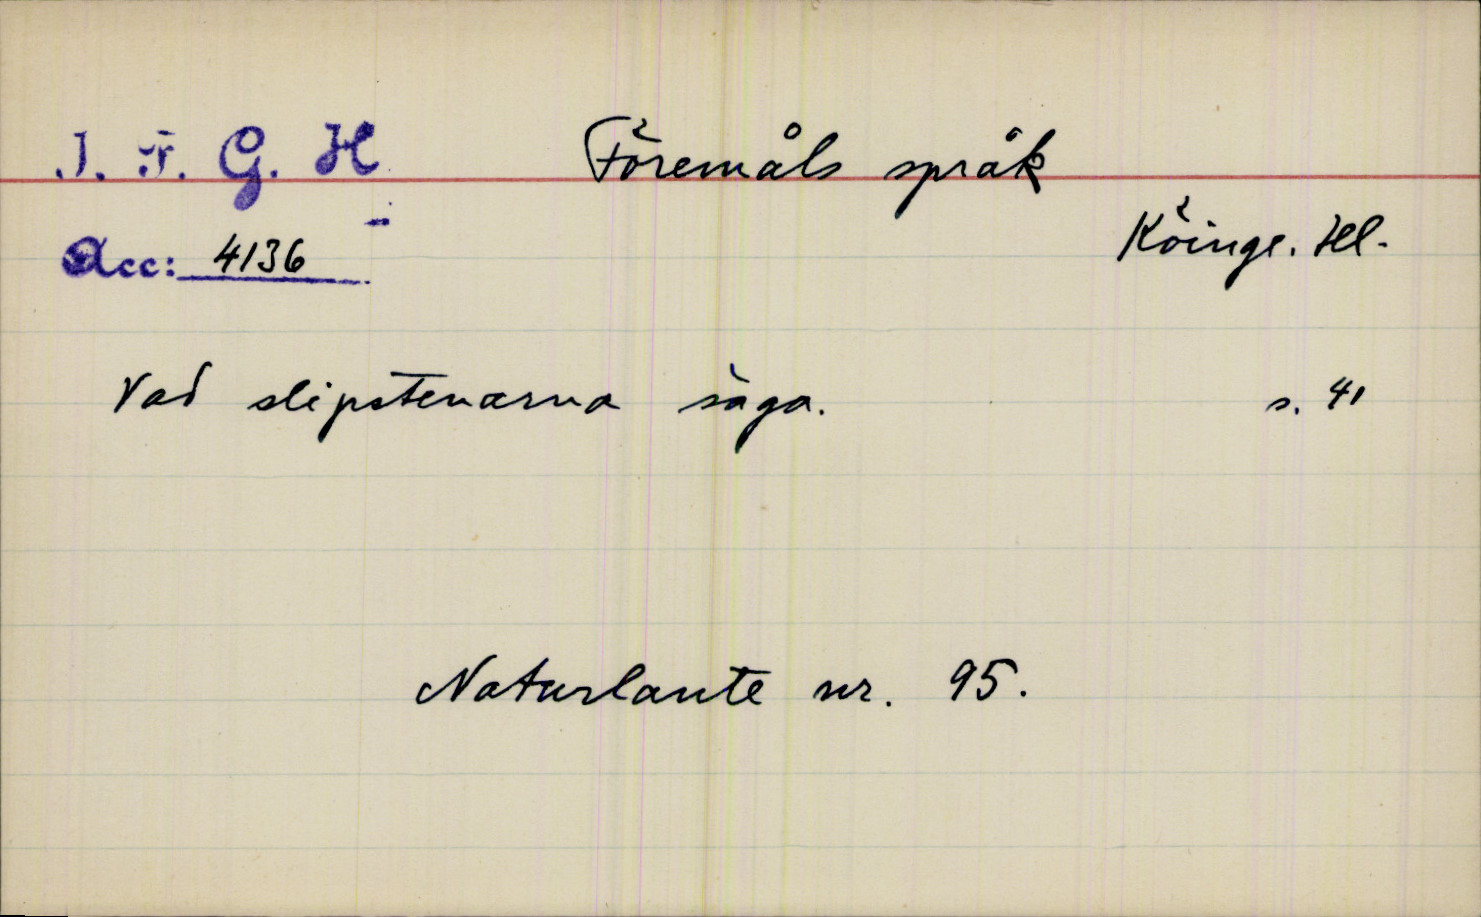 I. F. G. H.
Föremåls språk
Köinge. Hl.
Acc: 4136
Vad slipstenarna säga. s. 41
Naturlaute nr. 95.